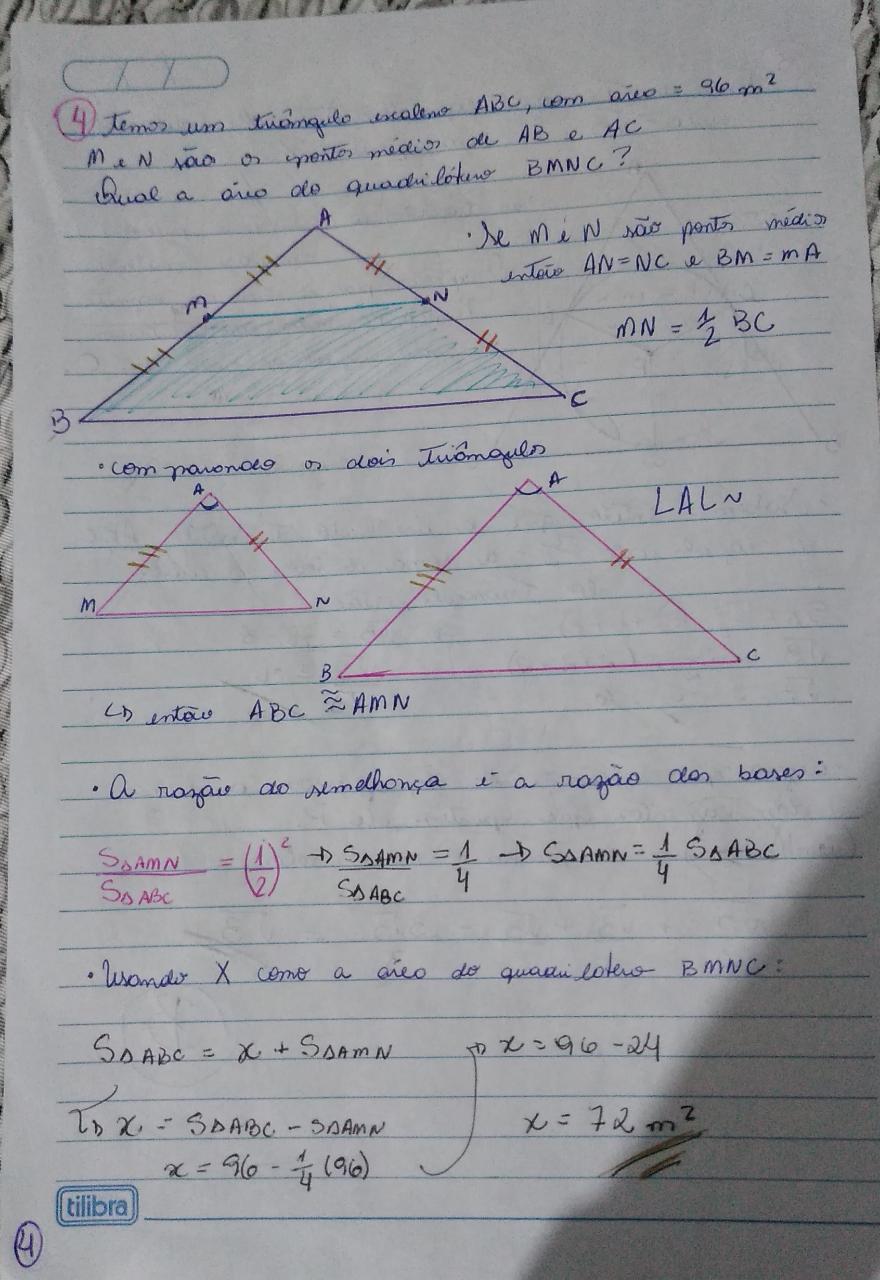 4 Temos um triângulo escaleno ABC, com área = 96 m²
M e N são os pontos médios de AB e AC
Qual a área do quadrilátero BMNC?
A
• Se M e N são pontos médios
então AN = NC e BM = MA
M
N
MN = 1/2 BC
B
C
• comparando os dois triângulos
A
A
LAL ~
M
N
B
C
↳ então ABC ≈ AMN
• A razão da semelhança é a razão das bases:
S△AMN/S△ABC = (1/2)² → S△AMN/S△ABC = 1/4 → S△AMN = 1/4 S△ABC
• Usando X como a área do quadrilátero BMNC:
S△ABC = x + S△AMN
→ x = 96 - 24
↳ x = S△ABC - S△AMN
x = 72 m²
x = 96 - 1/4 (96)
tilibra
4